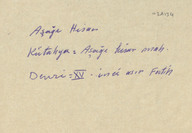 Aşağı Hisar
Kütahya = Aşağı hisar mah.
Devri = XV. inci asır Fatih